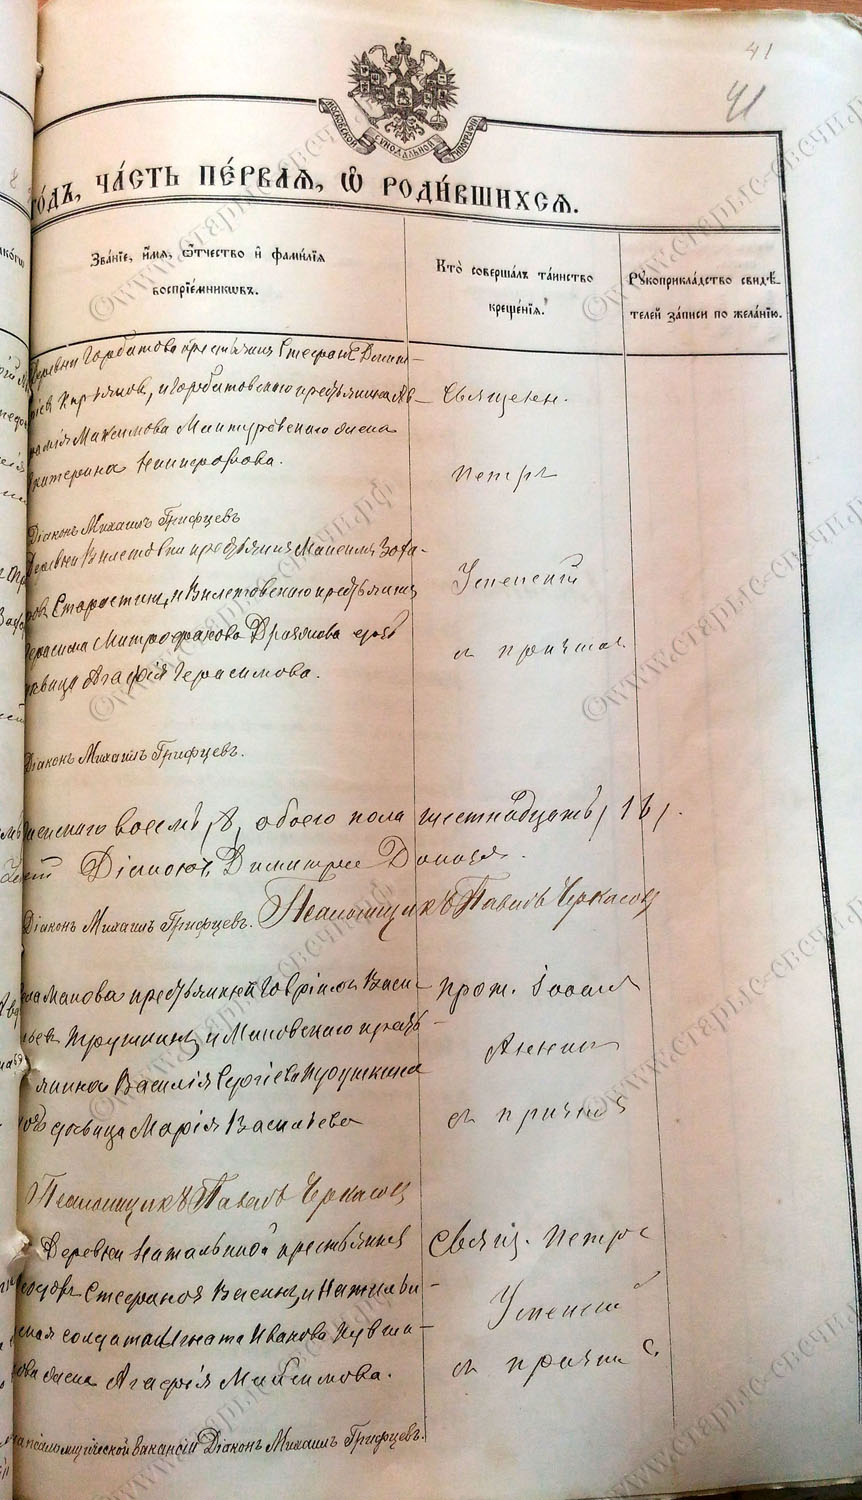 41
41
МОСКОВСКОЙ СУНОДАЛЬНОЙ ТИПОГРАФІИ
го́дъ, ча́сть пе́рвая, ѡ҆ роди́вшихся.
Зва́нїе, и҆́мя, ѻ҆́тчество и҆ фами́лїя
воспрїе́мникѡвъ.
Кто̀ соверша́лъ та́инство
креще́нїя.
Рꙋкоприкла́дство свидѣ́-
телей за́писи по жела́нїю.
Деревни Горбатова крестьянинъ Стефанъ Димит-
ріев, и Горбатовскаго крестьянина Ав-
рамія Максимова жена
Екатерина Никифорова.
Священ.
Петръ
Діаконъ Михаилъ Грифцевъ
Деревни крестьянинъ Заха-
ровъ Старостинъ, и крестьянина
Герасима Митрофанова дочь
дѣвица Агафія Герасимова.
Успенскій
съ причтомъ
Діаконъ Михаилъ Грифцевъ.
женскаго восемь /8/, обоего пола шестнадцать /16/.
Діаконъ Димитрій
Діаконъ Михаилъ Грифцевъ. Псаломщикъ Павелъ Черкасов
Села Макова крестьянинъ Гавріилъ Васи-
льевъ Трушкинъ, и Маковскаго кресть-
янина Василія Сергіева Трушкина
дочь дѣвица Марія Васильева
прот. Іоаннъ
съ причтомъ
Псаломщикъ Павелъ Черкасов
Деревни Натальиной крестьянинъ
Стефановъ Васинъ, и Натальин-
ская солдата Игната Иванова
жена Агафія Максимова.
Свящ. Петръ
Успенскій
съ причтом
на псаломщической вакансіи Діаконъ Михаилъ Грифцевъ.
©www.старые-свечи.рф